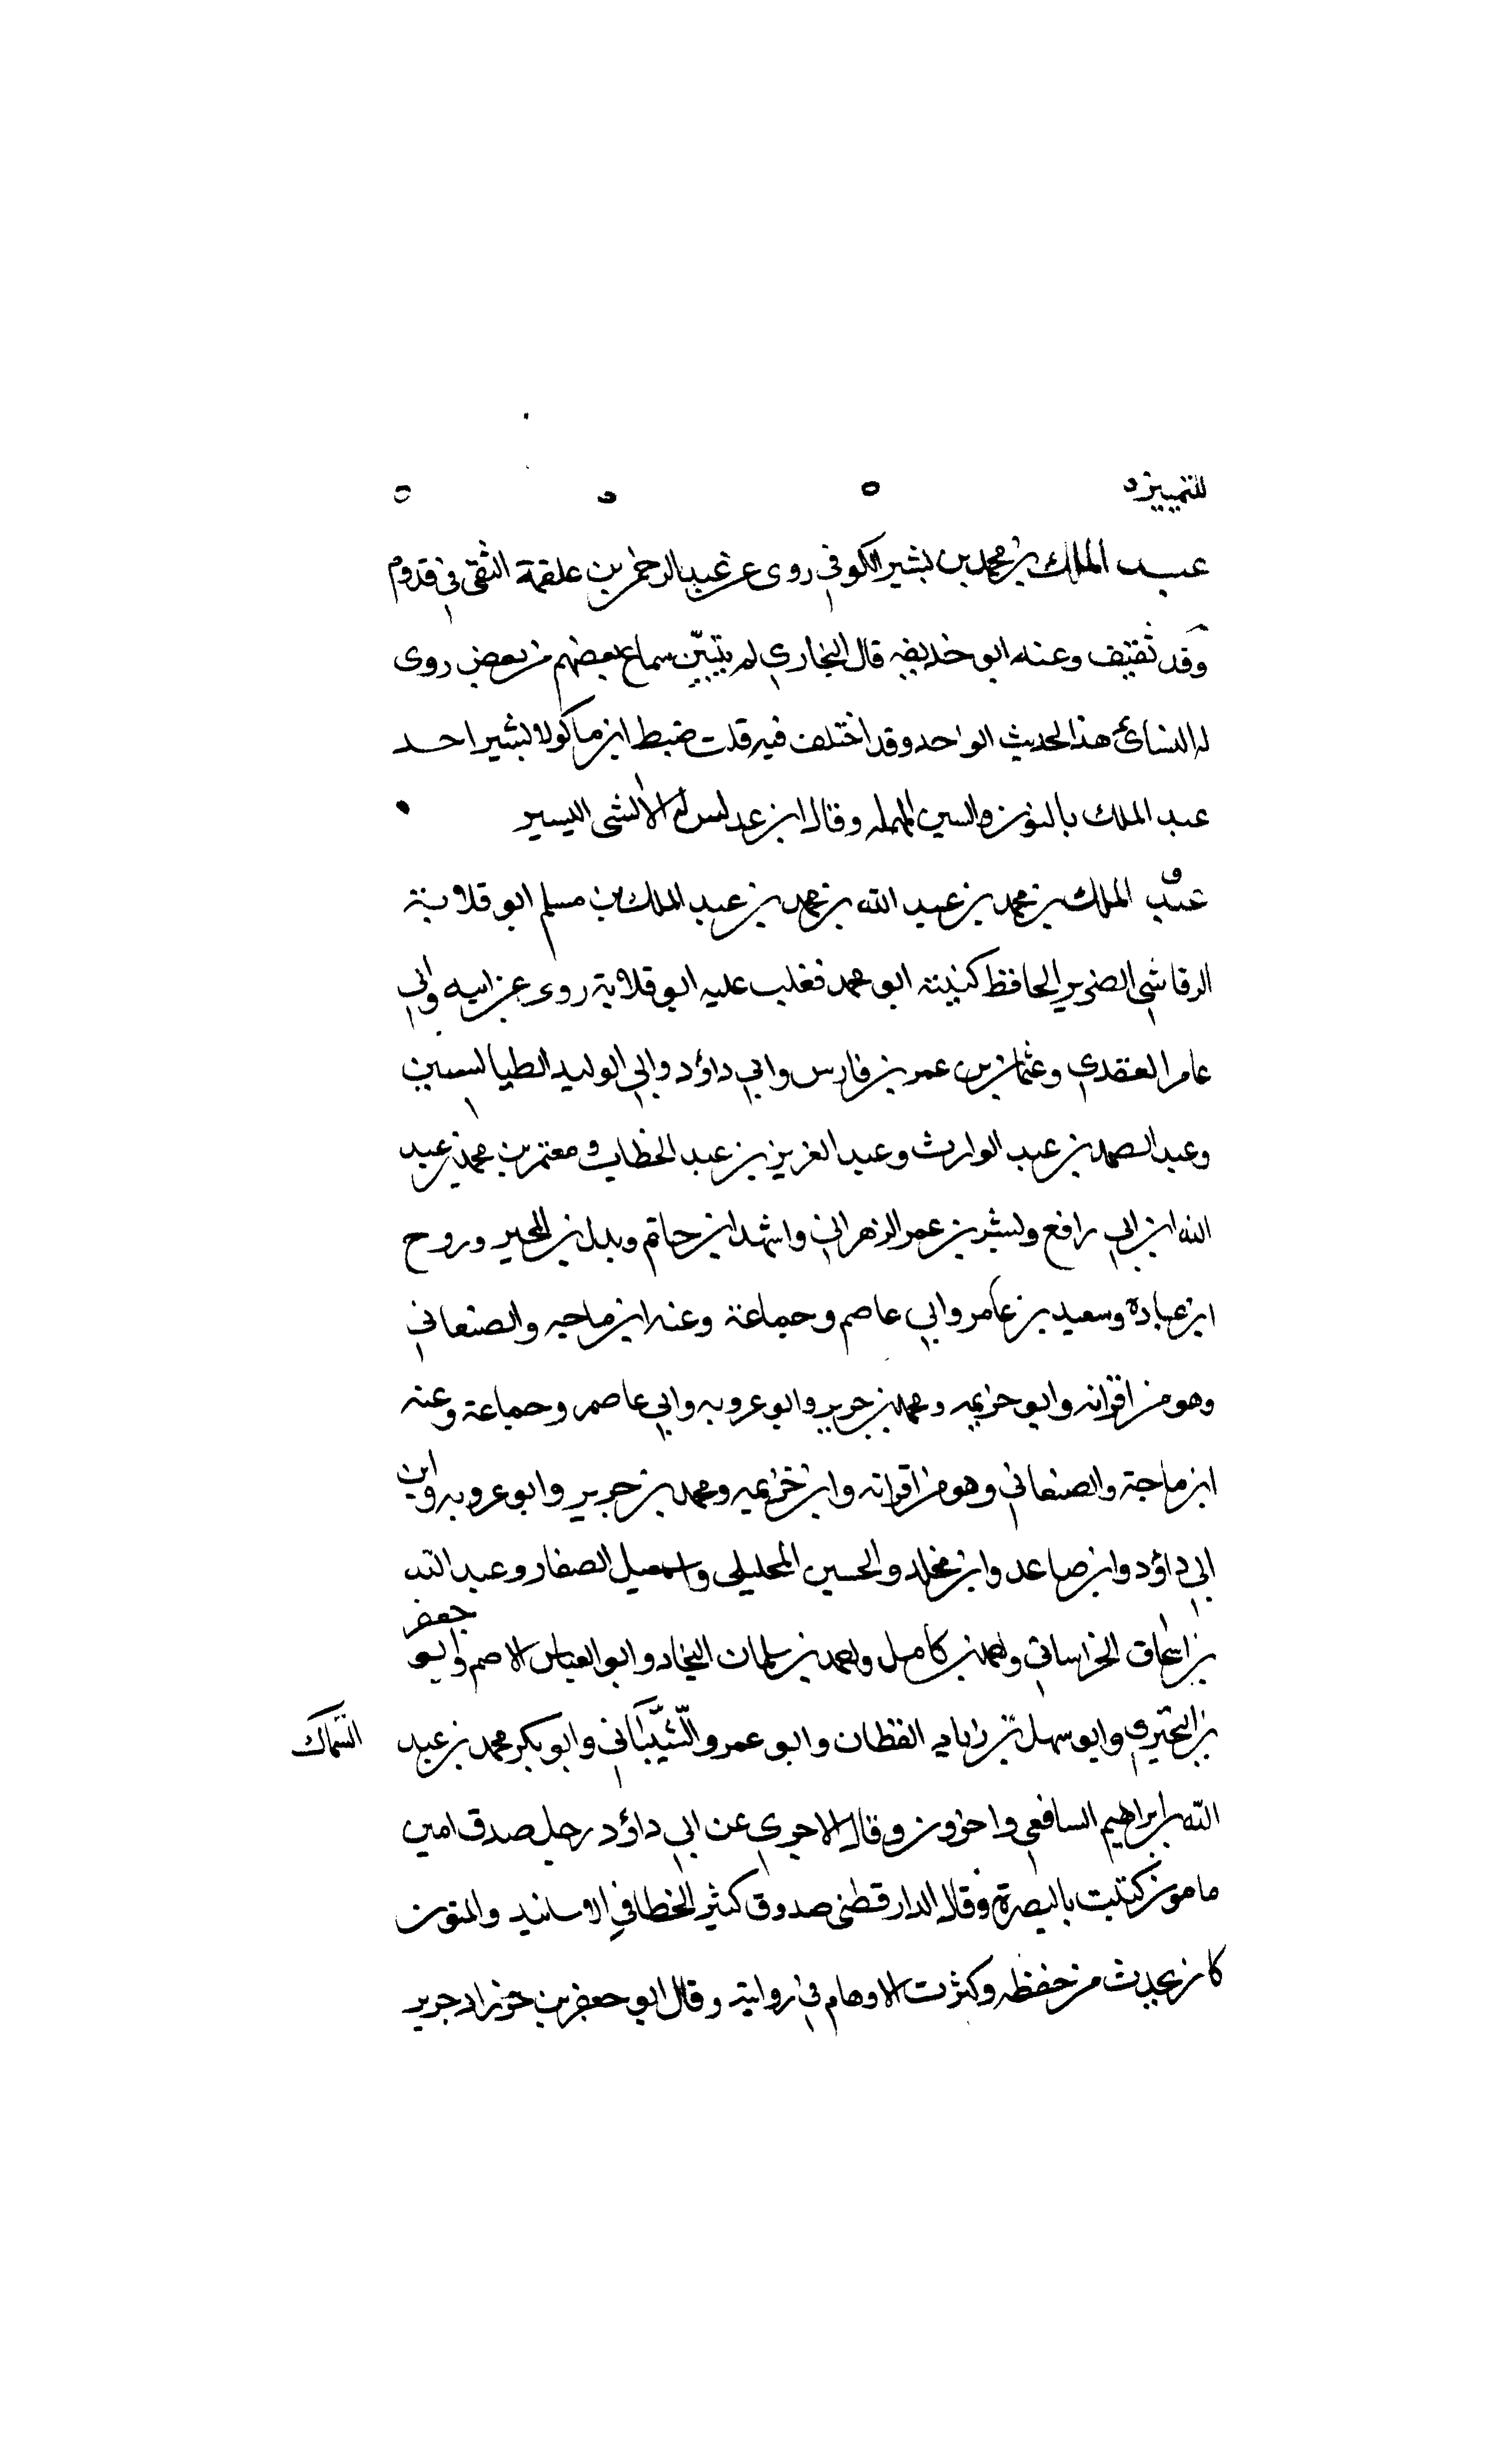 للتمييز ه
عبد الملك بن محمد بن بشير الكوفي روى عن عبد الرحمن بن علقمة الثقفي في قدوم
وفد ثقيف وعنه ابو حذيفه قال البخاري لم يتبيّن سماع بعضهم من بعض روى
له النسائي هذا الحديث الواحد وقد اختلف فيه قلت ضبط ابن ماكولا بشير احد
عبد الملك بالنون والسين المهمله وقال ابن عدي ليس له الا الشي اليسير
ق
عبد الملك بن محمد بن عبد الله بن محمد بن عبد الملك بن مسلم ابو قلابة
الرقاشي الضرير الحافظ كنيته ابو محمد فغلب عليه ابو قلابة روى عن ابيه وابي
عامر العقدي وعثمان بن عمر بن فارس وابي داؤد وابي الوليد الطيالسيين
وعبد الصمد بن عبد الوارث وعبد العزيز بن عبد الخطاب ومعتمر بن محمد بن عبيد
الله ابن ابي رافع وبشر بن عمر الزهراني واشهل ابن حاتم وبدل بن المحبر وروح
ابن عبادة وسعيد بن عامر وابي عاصم وجماعة وعنه ابن ماجه والصنعاني
وهو من اقرانه وابو خزيمه ومحمد بن جرير وابو عروبه وابي عاصم وجماعة وعنه
ابن ماجة والصنعاني وهو من اقرانه وابن خزيمه ومحمد بن جرير وابو عروبه وابن
ابي داؤد وابن صاعد وابن مخلد والحسين المحاملي واسمعيل الصفار وعبد الله
بن اسحاق الخراساني واحمد بن كامل واحمد بن سلمان النجاد وابو العباس الاصم وابو جعفر
بن البختري وابو سهل بن زياد القطان وابو عمرو الشيباني وابو بكر محمد بن عبد السّماك
الله بن ابراهيم الشافعي واخرون وقال الاجري عن ابي داؤد رجل صدق امين
مامون كتبت بالبصرة وقال الدارقطني صدوق كثير الخطا في الاسانيد والمتون
كان يحدث من حفظه وكثرت الاوهام في روايته وقال ابو جعفر بن جرير